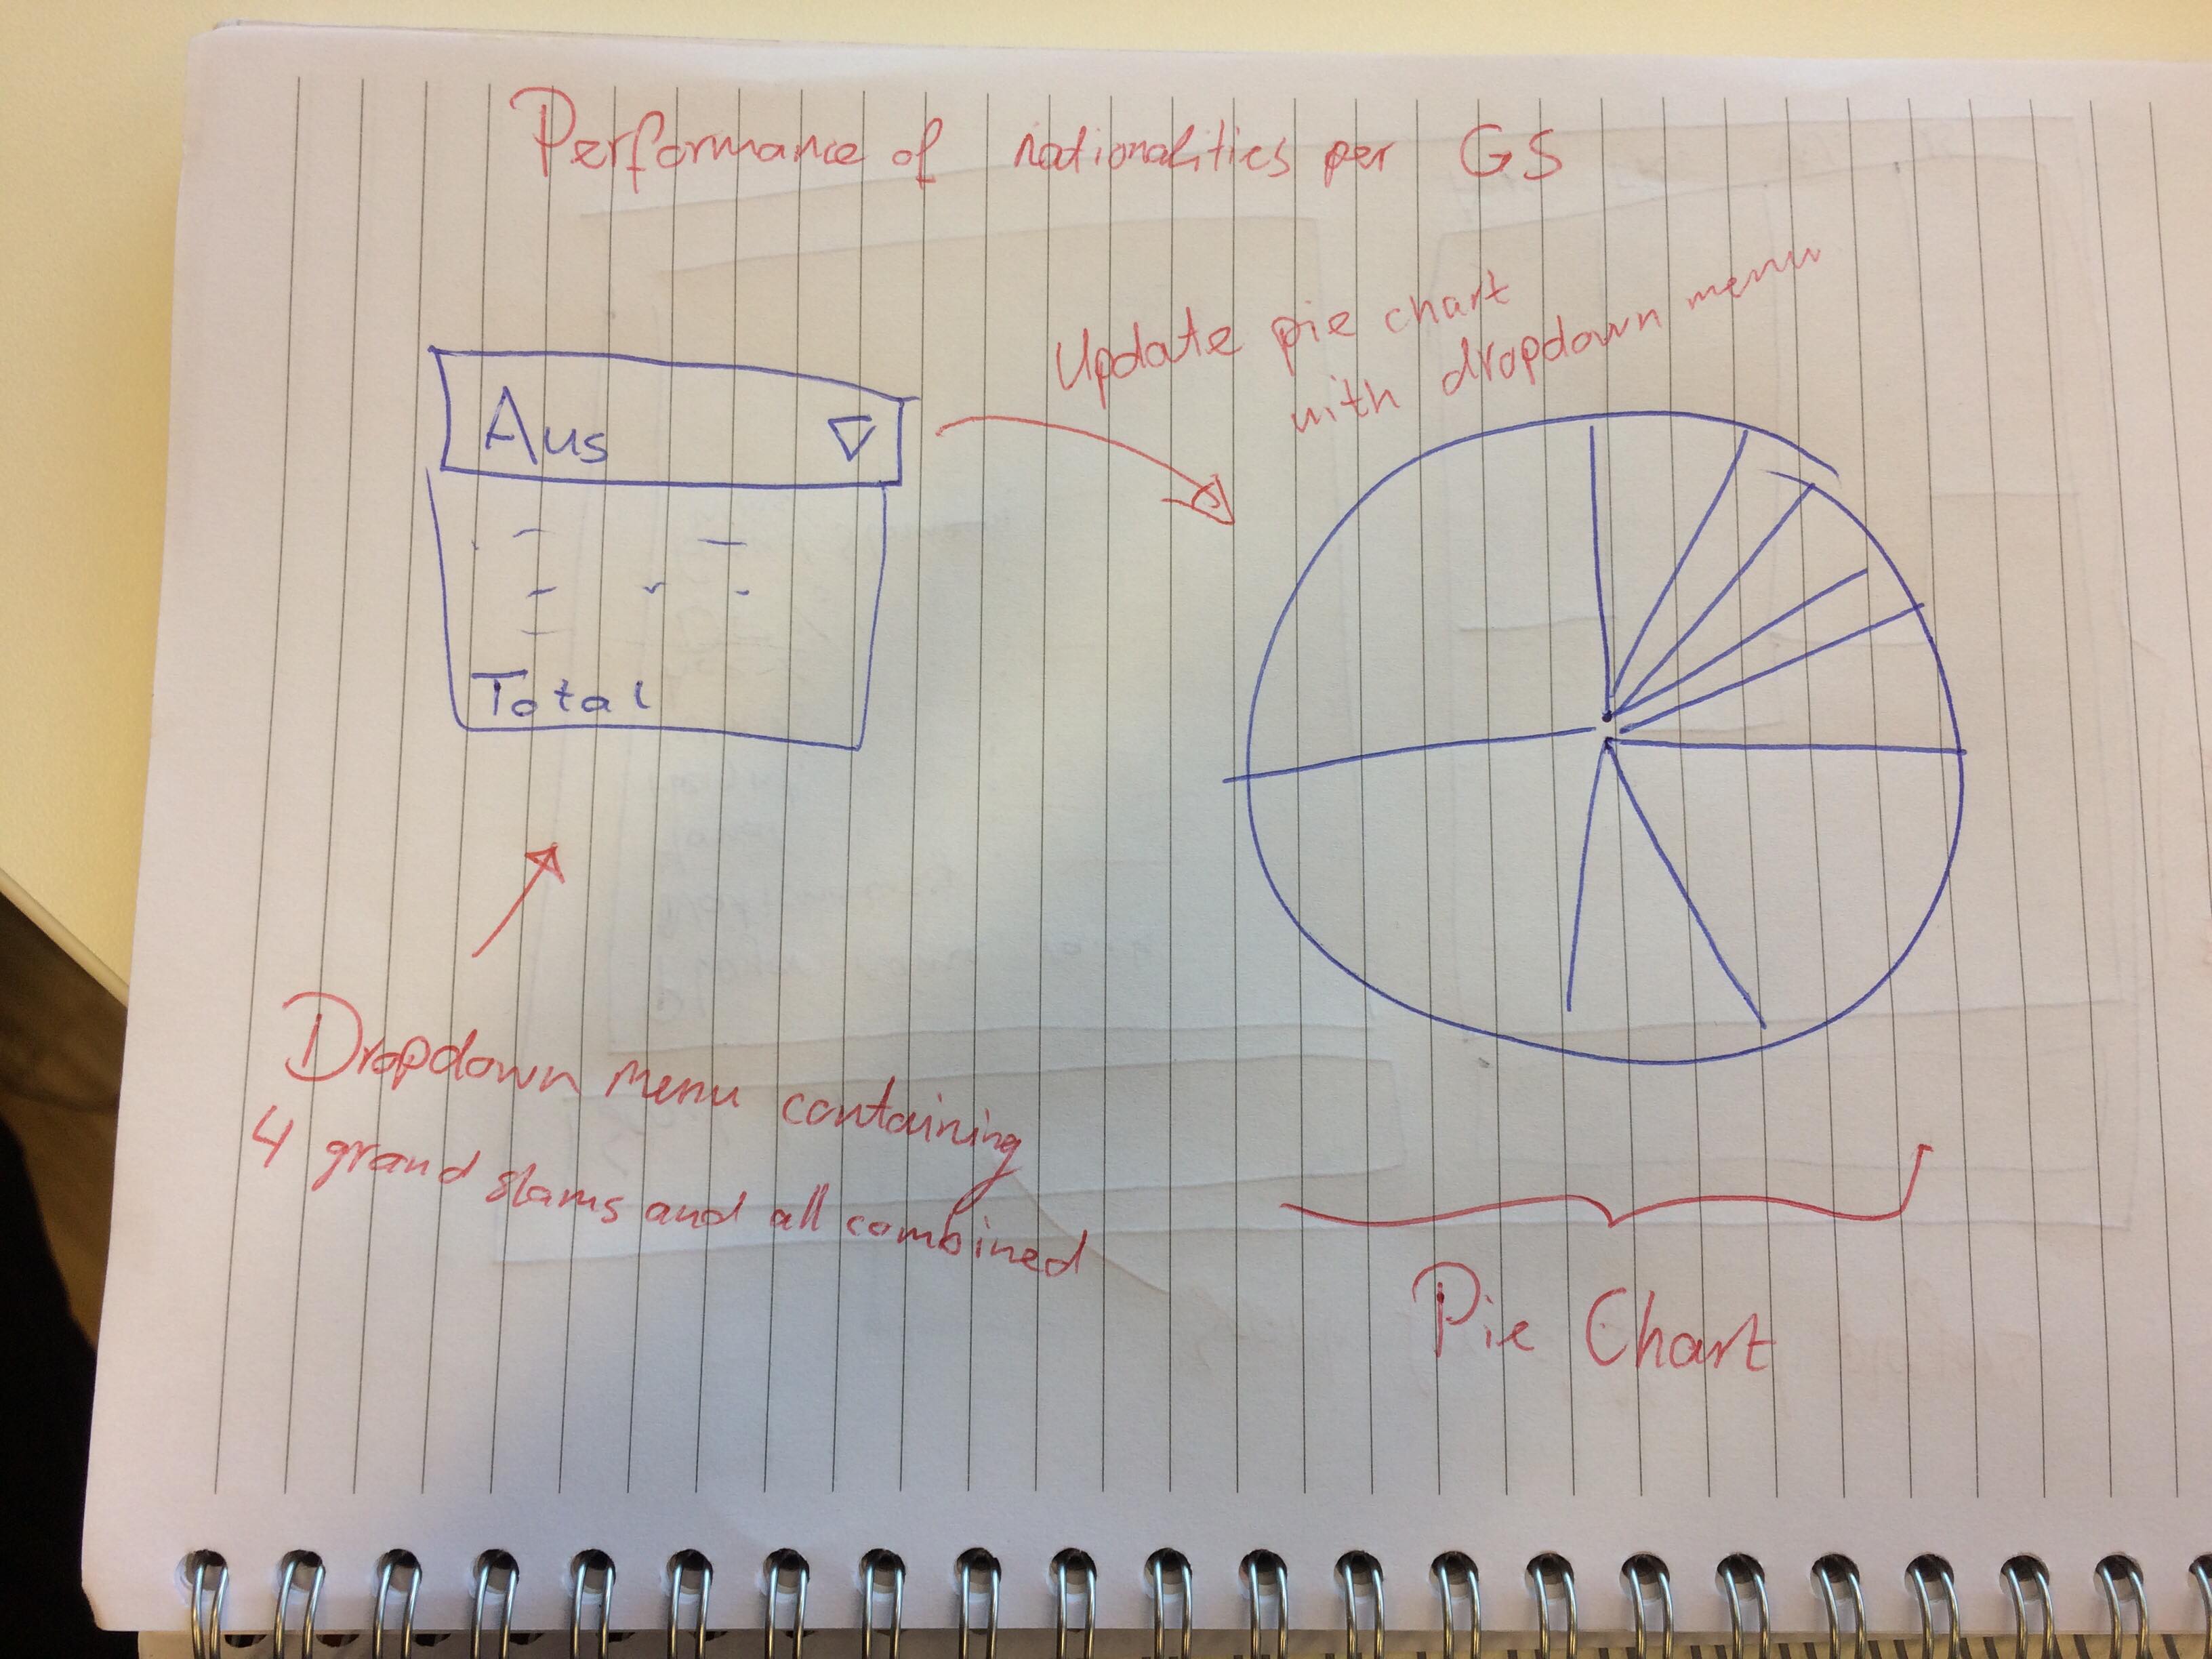 Performance of nationalities per GS
Update pie chart
with dropdown menu
Aus
Total
Dropdown menu containing
4 grand slams and all combined
Pie Chart